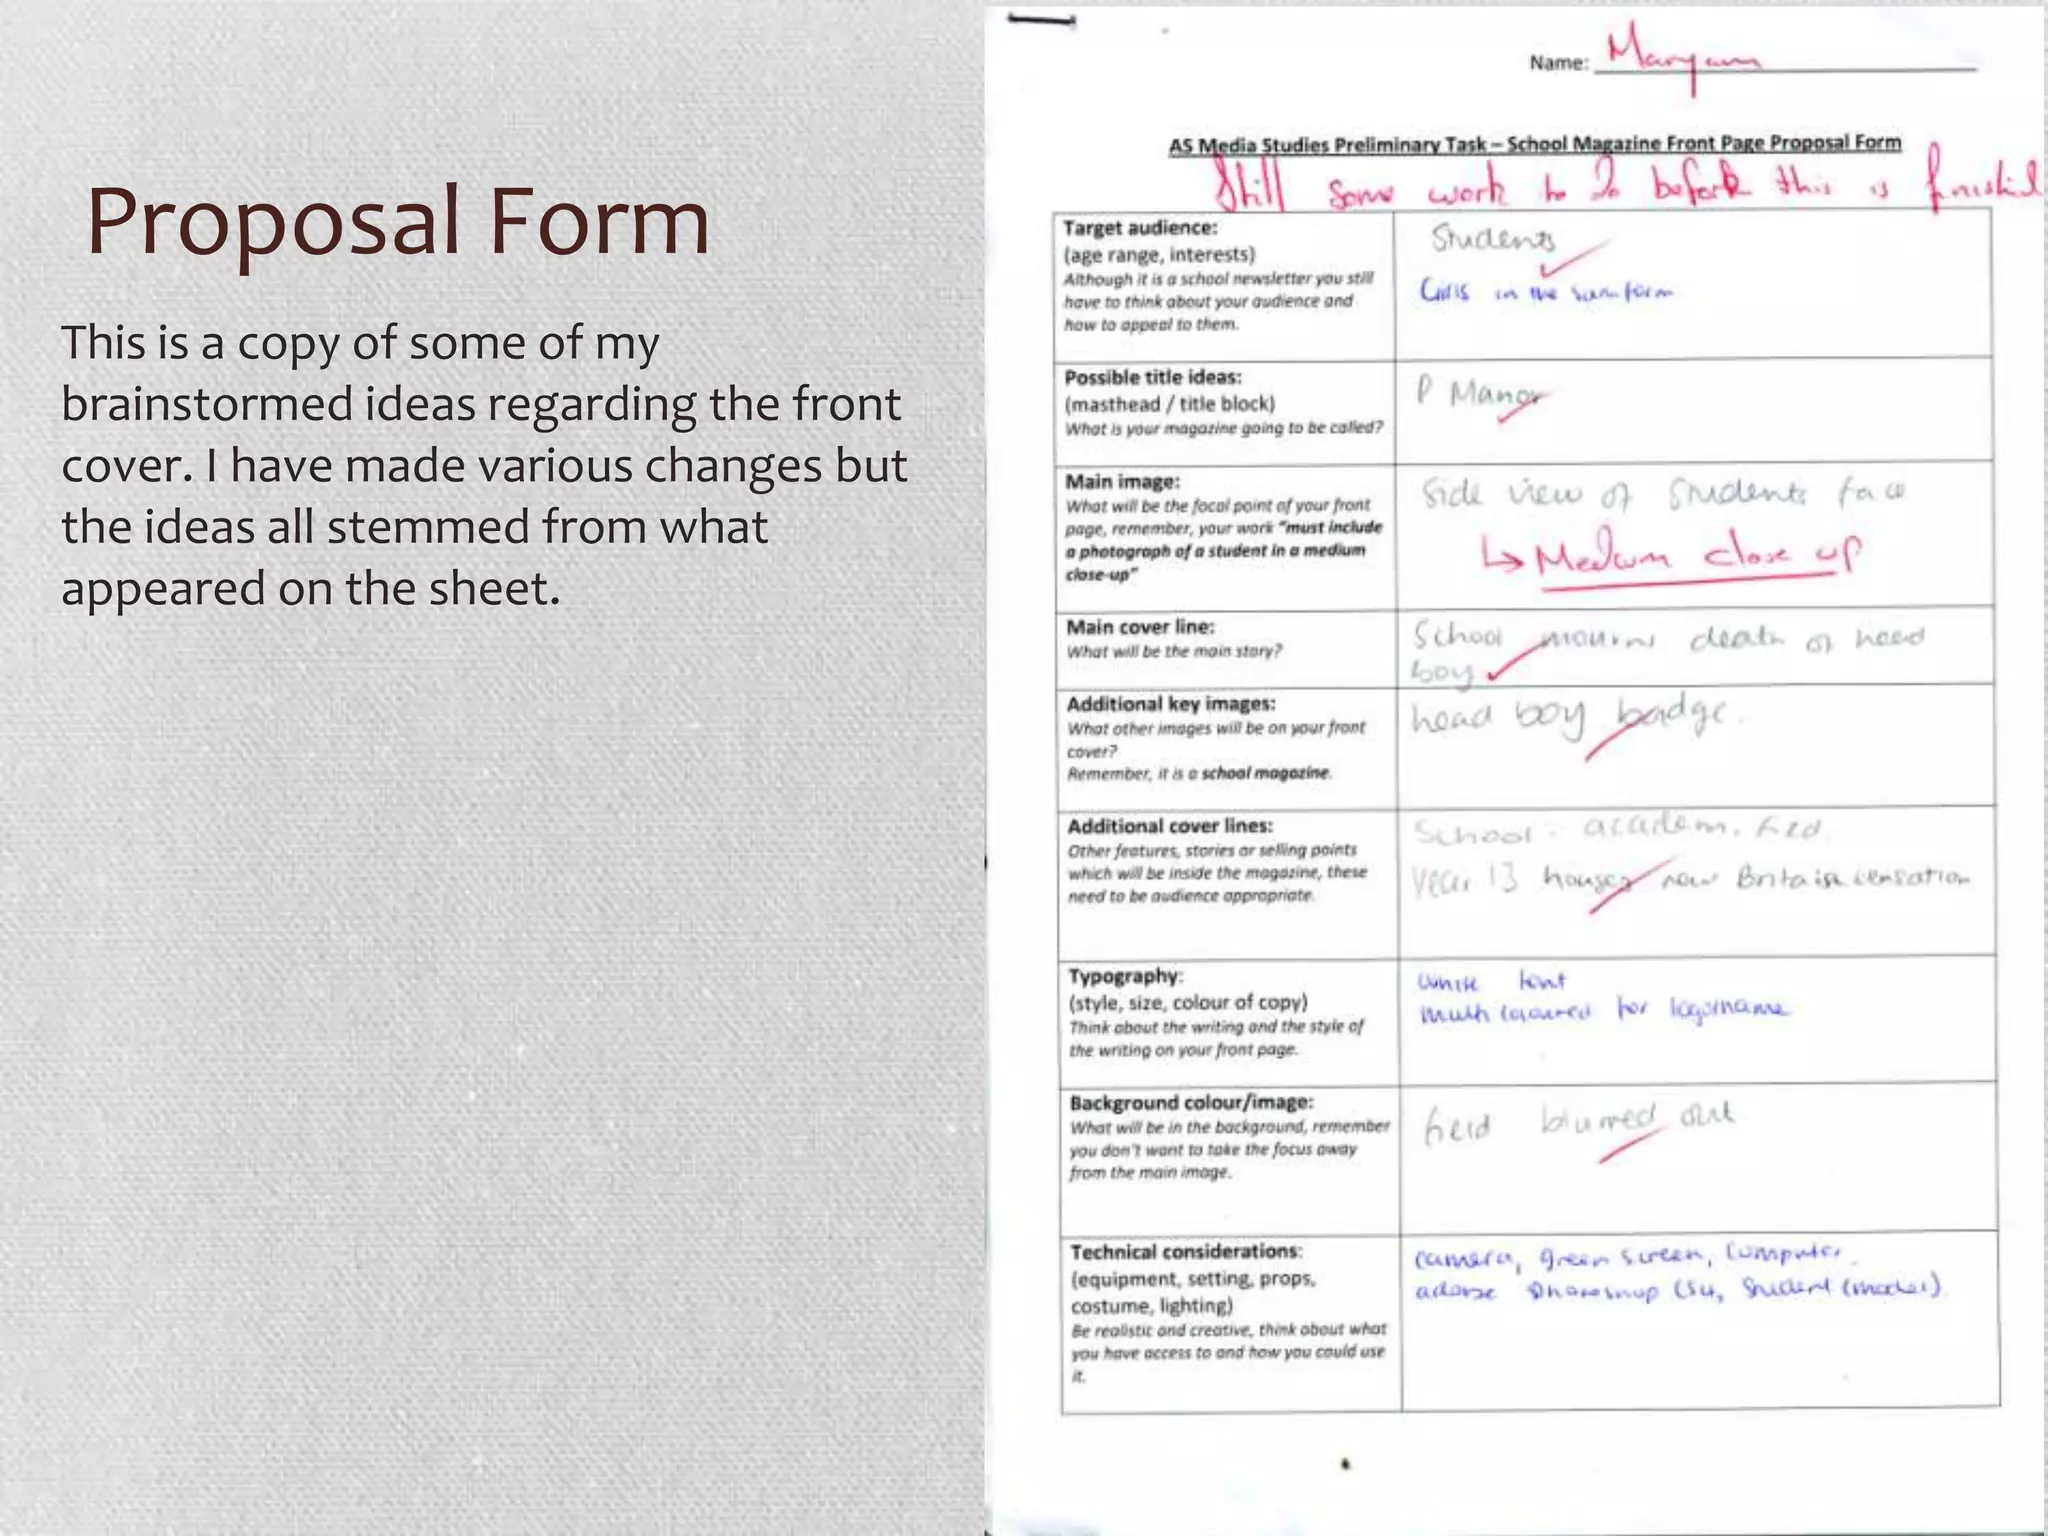 Proposal Form
This is a copy of some of my
brainstormed ideas regarding the front
cover. I have made various changes but
the ideas all stemmed from what
appeared on the sheet.
Name: Maryam
AS Media Studies Preliminary Task – School Magazine Front Page Proposal Form
Still some work to do before this is finished
Target audience:
(age range, interests)
Although it is a school newsletter you still
have to think about your audience and
how to appeal to them.
Students
Girls in the
Possible title ideas:
(masthead / title block)
What is your magazine going to be called?
P Manor
Main image:
What will be the focal point of your front
page, remember, your work "must include
a photograph of a student in a medium
close-up"
Side view of students face
Medium close up
Main cover line:
What will be the main story?
School mourns death of head
boy
Additional key images:
What other images will be on your front
cover?
Remember, it is a school magazine.
head boy badge.
Additional cover lines:
Other features, stories or selling points
which will be inside the magazine, these
need to be audience appropriate.
School - academ.
Year 13 houses new Britain sensation
Typography:
(style, size, colour of copy)
Think about the writing and the style of
the writing on your front page.
white font
multi coloured for logo/name
Background colour/image:
What will be in the background, remember
you don't want to take the focus away
from the main image.
field blurred out
Technical considerations:
(equipment, setting, props,
costume, lighting)
Be realistic and creative, think about what
you have access to and how you could use
it.
camera, green screen, computer,
adobe Photoshop CS4, Student (model)